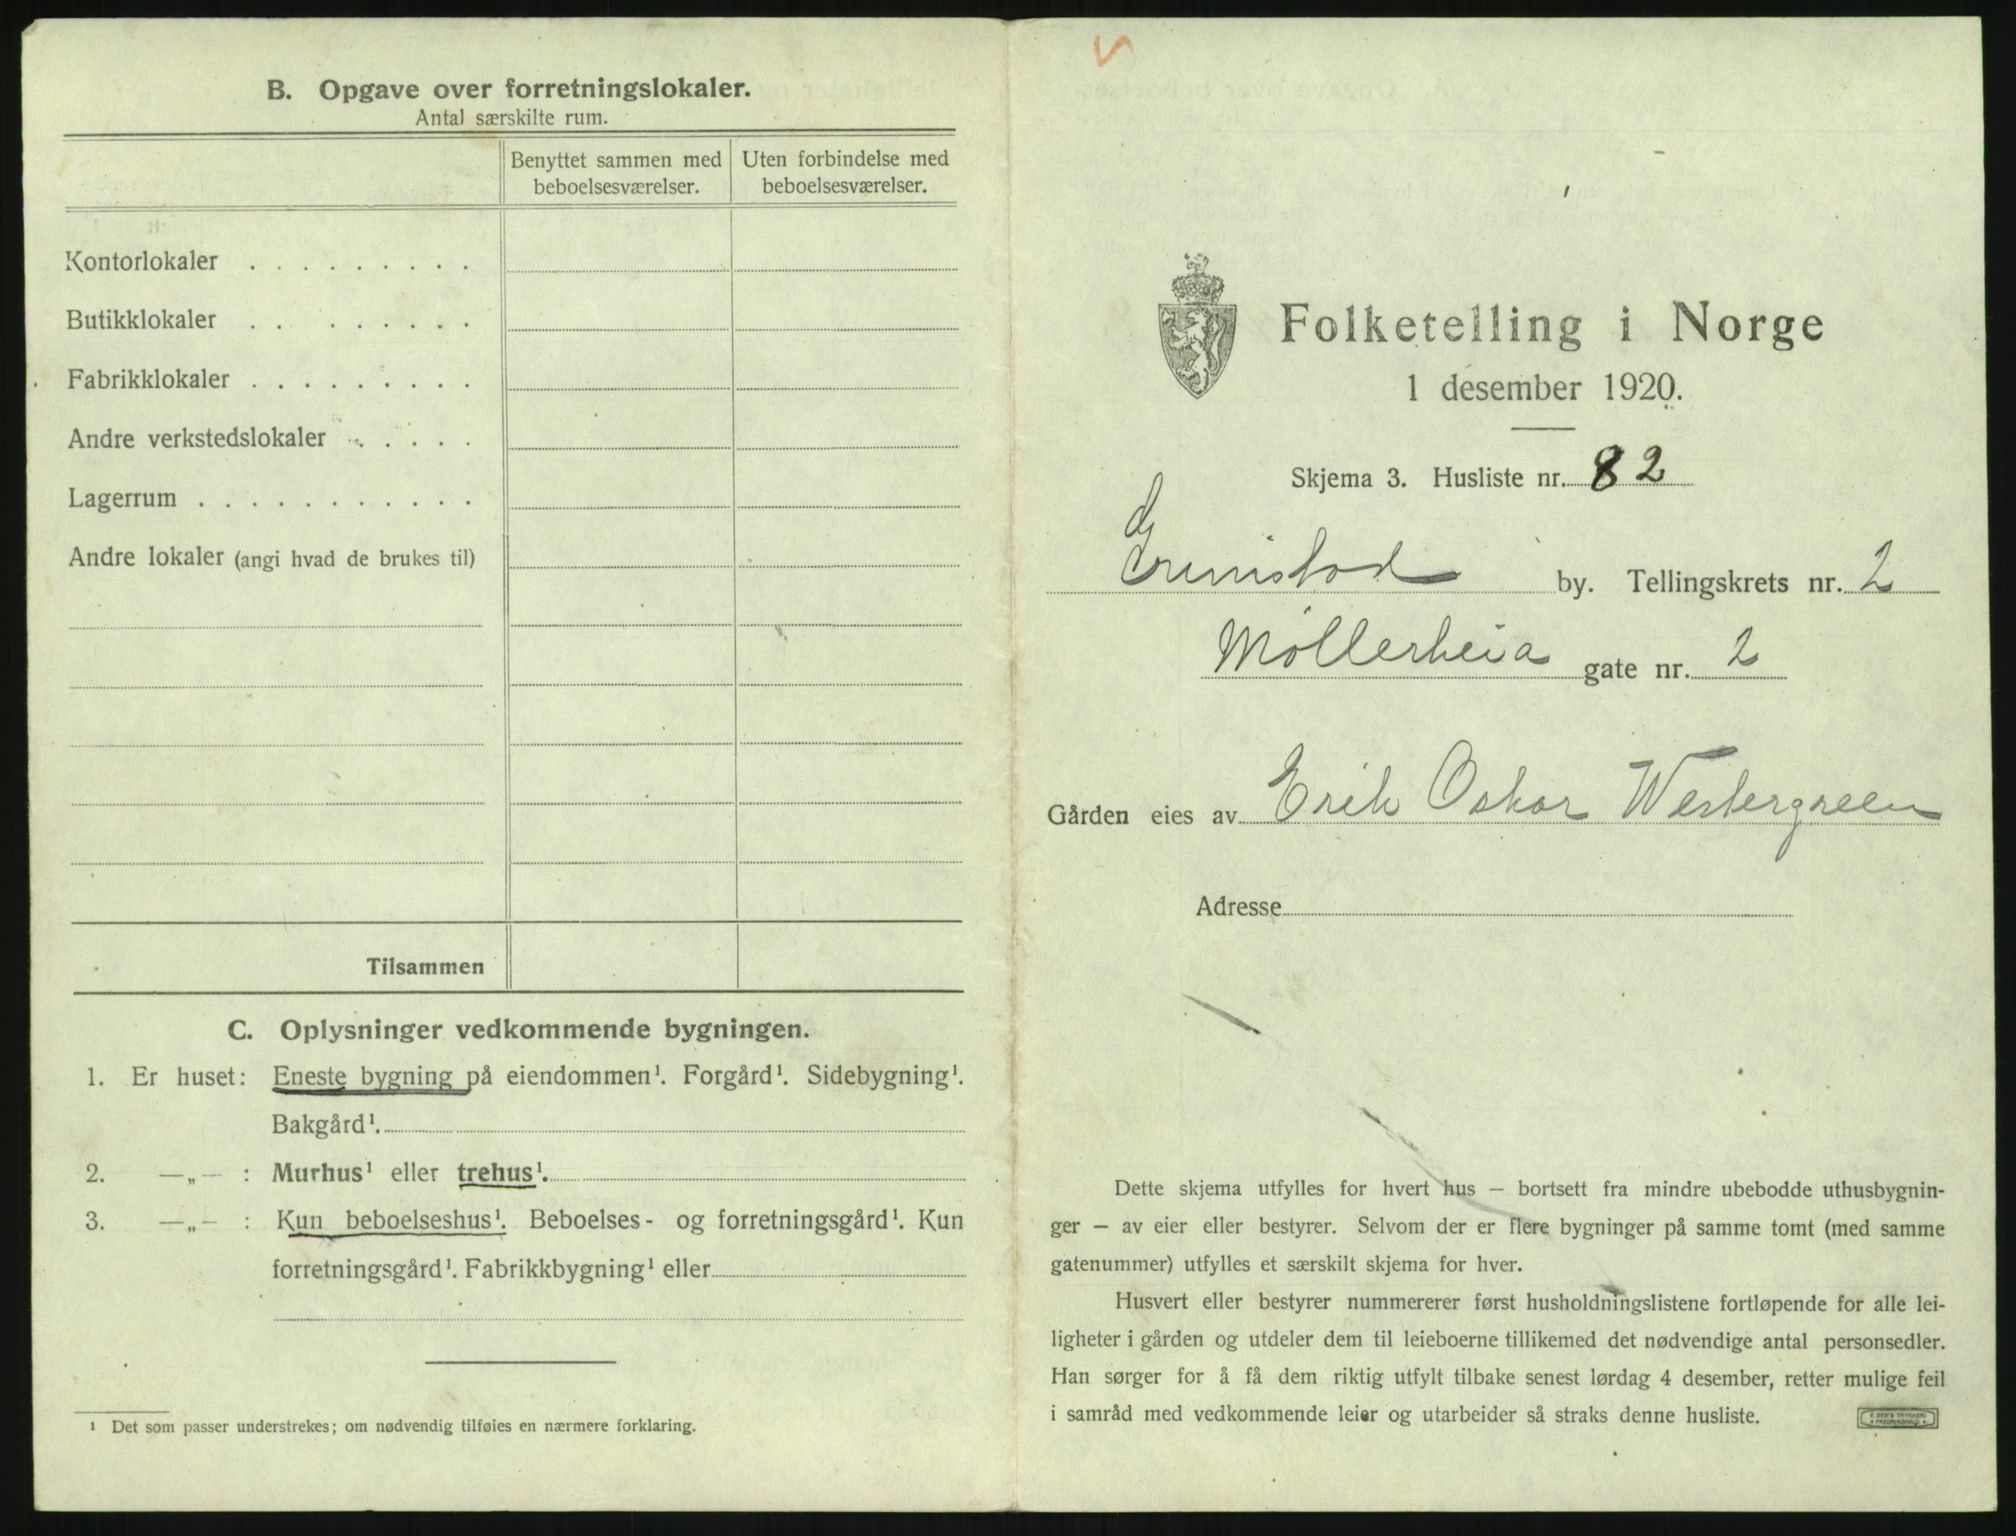 B. Opgave over forretningslokaler.
Antal særskilte rum.
Benyttet sammen med beboelsesværelser.
Uten forbindelse med beboelsesværelser.
Kontorlokaler . . . . . . . . .
Butikklokaler . . . . . . . . .
Fabrikklokaler . . . . . . . . .
Andre verkstedslokaler . . . . .
Lagerrum . . . . . . . . . . .
Andre lokaler (angi hvad de brukes til)
Tilsammen
C. Oplysninger vedkommende bygningen.
1. Er huset: Eneste bygning på eiendommen¹. Forgård¹. Sidebygning¹.
Bakgård¹.
2. —„— : Murhus¹ eller trehus¹.
3. —„— : Kun beboelseshus¹. Beboelses- og forretningsgård¹. Kun
forretningsgård¹. Fabrikkbygning¹ eller
¹ Det som passer understrekes; om nødvendig tilføies en nærmere forklaring.
Folketelling i Norge
1 desember 1920.
Skjema 3. Husliste nr. 82
Grimstad by. Tellingskrets nr. 2
Møllerheia gate nr. 2
Gården eies av Erik Oskar Westergreen
Adresse
Dette skjema utfylles for hvert hus — bortsett fra mindre ubebodde uthusbygnin-
ger — av eier eller bestyrer. Selvom der er flere bygninger på samme tomt (med samme
gatenummer) utfylles et særskilt skjema for hver.
Husvert eller bestyrer nummererer først husholdningslistene fortløpende for alle lei-
ligheter i gården og utdeler dem til leieboerne tillikemed det nødvendige antal personsedler.
Han sørger for å få dem riktig utfylt tilbake senest lørdag 4 desember, retter mulige feil
i samråd med vedkommende leier og utarbeider så straks denne husliste.